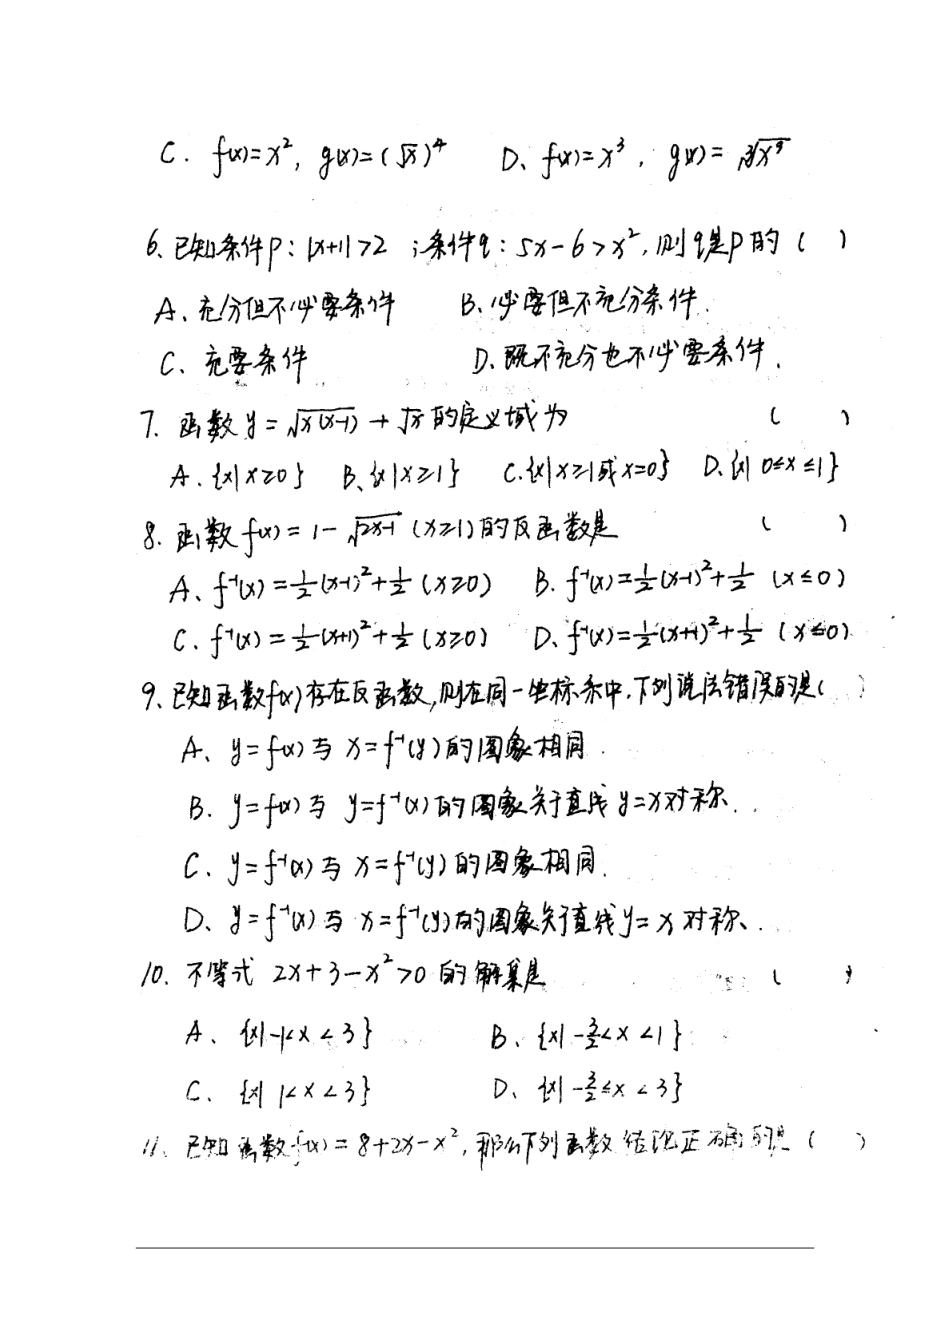 C. f(x)=x², g(x)=(√x)⁴ D、f(x)=x³, g(x)=∛x⁹
6、已知条件p：|x+1|>2 ；条件q：5x-6>x²，则q是p的（ ）
A、充分但不必要条件 B、必要但不充分条件.
C、充要条件 D、既不充分也不必要条件.
7. 函数y=√x(x-1)+√x的定义域为 （ ）
A.{x|x≥0} B、{x|x≥1} C.{x|x≥1或x=0} D、{x|0≤x≤1}
8. 函数f(x)=1-√2x-1 (x≥1)的反函数是 （ ）
A、f⁻¹(x)=½(x-1)²+½ (x≥0) B. f⁻¹(x)=½(x-1)²+½ (x≤0)
C. f⁻¹(x)=½(x+1)²+½ (x≥0) D、f⁻¹(x)=½(x+1)²+½ (x≤0)
9、已知函数f(x)存在反函数,则在同一坐标系中,下列说法错误的是( )
A、y=f(x)与x=f⁻¹(y)的图象相同.
B. y=f(x)与y=f⁻¹(x)的图象关于直线y=x对称.
C、y=f⁻¹(x)与x=f⁻¹(y)的图象相同.
D、y=f⁻¹(x)与x=f⁻¹(y)的图象关于直线y=x对称、
10. 不等式 2x+3-x²>0的解集是 （ ）
A、{x|-1<x<3} B、{x|-3/2<x<1}
C、{x|1<x<3} D、{x|-3/2≤x<3}
11、已知函数f(x)=8+2x-x²,那么下列函数结论正确的是（ ）